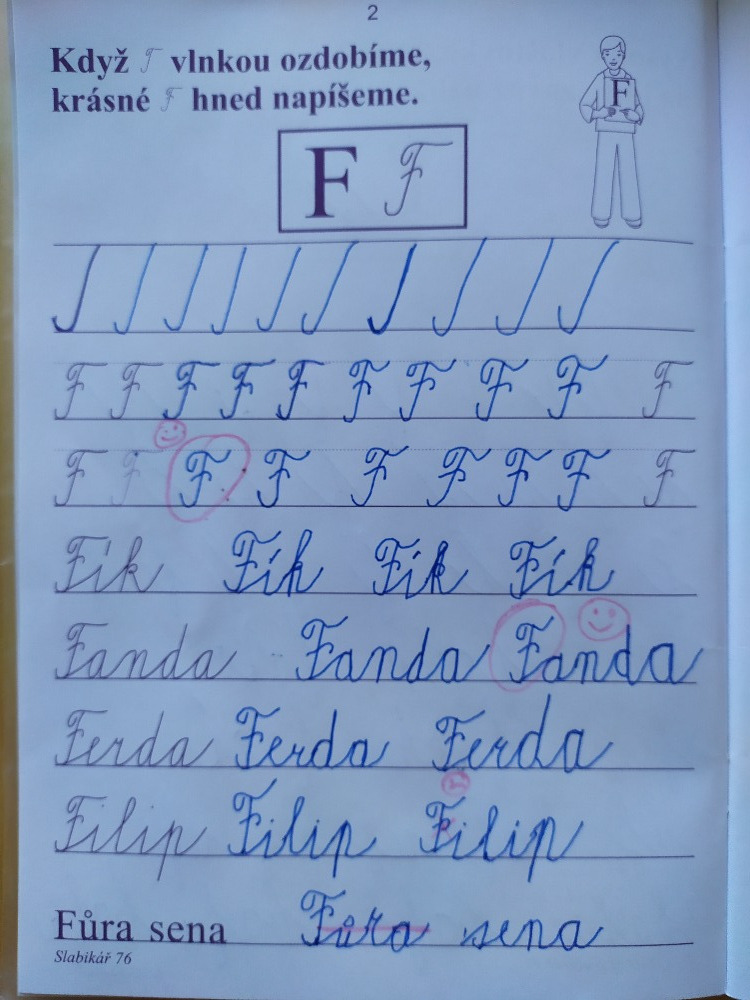 2
Když T vlnkou ozdobíme,
krásné F hned napíšeme.
F
F F
J J J J J J J J J J
F F F F F F F F F F
F F F F F F F F F F
Fík Fík Fík Fík
Fanda Fanda Fanda
Ferda Ferda Ferda
Filip Filip Filip
Fůra sena Fůra sena
Slabikář 76